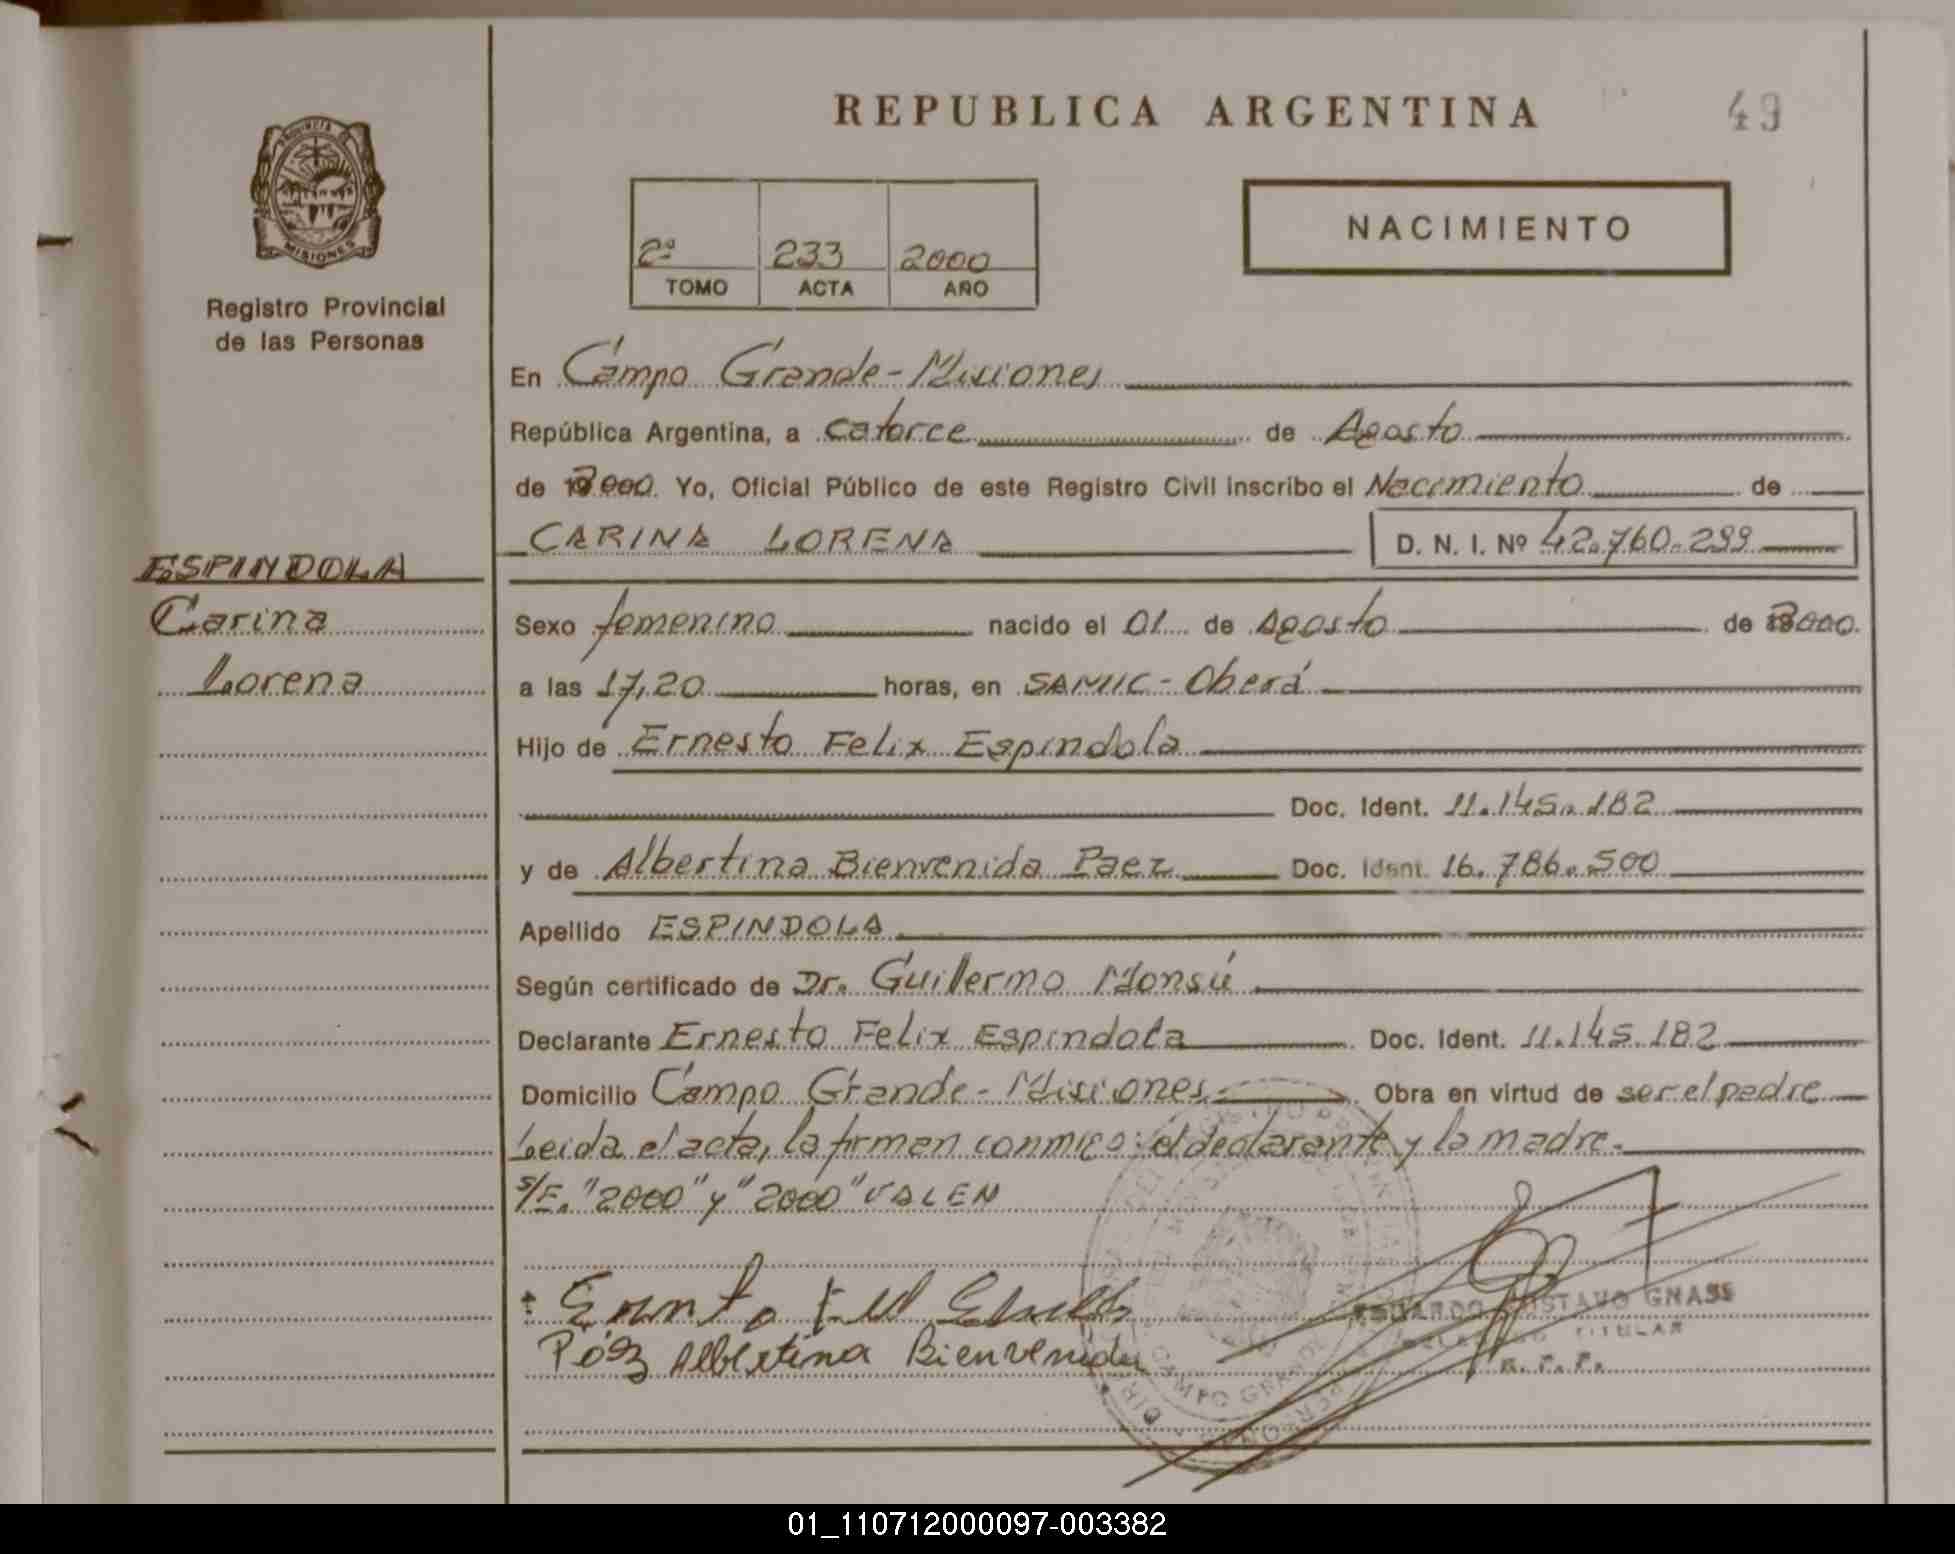 REPUBLICA ARGENTINA
49
PROVINCIA DE
MISIONES
Registro Provincial
de las Personas
2º 233 2000
TOMO ACTA AÑO
NACIMIENTO
En Campo Grande - Misiones
República Argentina, a catorce de Agosto
de 2000. Yo, Oficial Público de este Registro Civil inscribo el Nacimiento de
CARINA LORENA D. N. I. Nº 42.760.299
ESPINDOLA
Carina
Lorena
Sexo femenino nacido el 01 de Agosto de 2000.
a las 17,20 horas, en SAMIC - Oberá
Hijo de Ernesto Felix Espindola
Doc. Ident. 11.145.182
y de Albertina Bienvenida Paez Doc. Ident. 16.786.500
Apellido ESPINDOLA
Según certificado de Dr. Guillermo Monsú
Declarante Ernesto Felix Espindola Doc. Ident. 11.145.182
Domicilio Campo Grande - Misiones Obra en virtud de ser el padre
Leida el acta, la firman conmigo: el declarante y la madre.
S/E. "2000" y "2000" VALEN
Albertina Bienvenida
EDUARDO GUSTAVO GNASS
TITULAR
R. P. P.
CAMPO GRANDE
PERSONAS
01_110712000097-003382